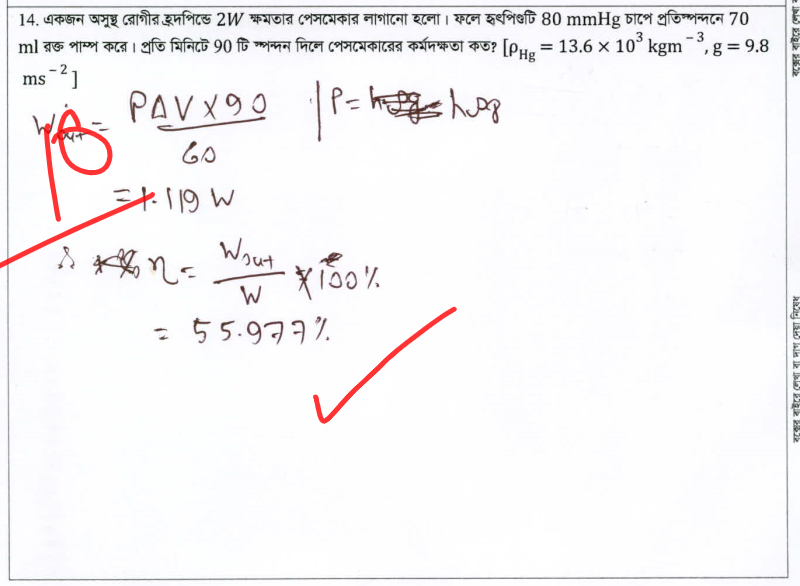 14. একজন অসুস্থ রোগীর হৃদপিন্ডে 2W ক্ষমতার পেসমেকার লাগানো হলো। ফলে হৃৎপিণ্ডটি 80 mmHg চাপে প্রতিস্পন্দনে 70
ml রক্ত পাম্প করে। প্রতি মিনিটে 90 টি স্পন্দন দিলে পেসমেকারের কর্মদক্ষতা কত? [ρ_Hg = 13.6 × 10³ kgm⁻³, g = 9.8
ms⁻²]
W_out = PΔV×90 / 60 | P = hρg
= 1.119 W
∴ η = W_out / W × 100%
= 55.977%